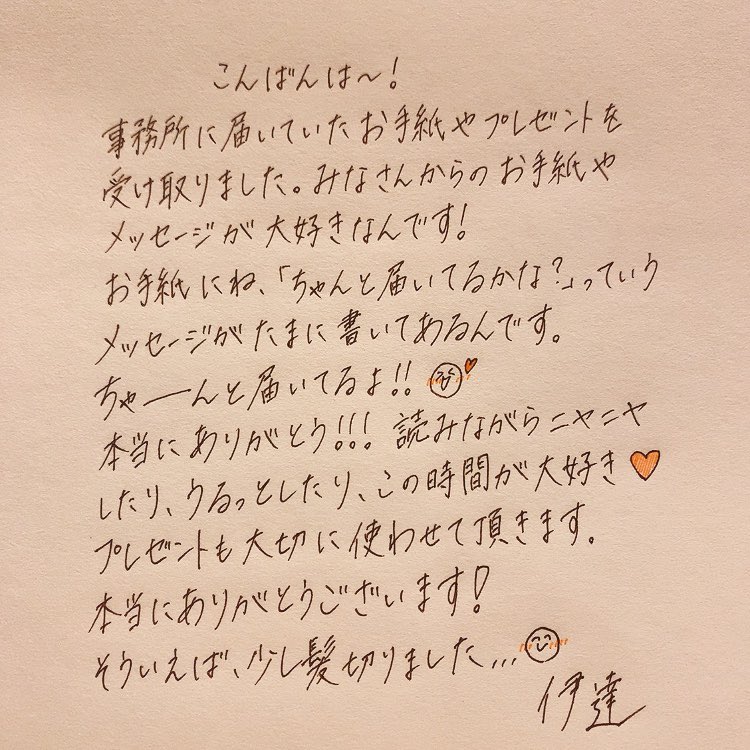 こんばんは〜!
事務所に届いていたお手紙やプレゼントを
受け取りました。みなさんからのお手紙や
メッセージが大好きなんです!
お手紙にね、「ちゃんと届いてるかな?」っていう
メッセージがたまに書いてあるんです。
ちゃーーんと届いてるよ!!
本当にありがとう!!! 読みながらニヤニヤ
したり、うるっとしたり、この時間が大好き
プレゼントも大切に使わせて頂きます。
本当にありがとうございます!
そういえば、少し髪切りました...
伊達